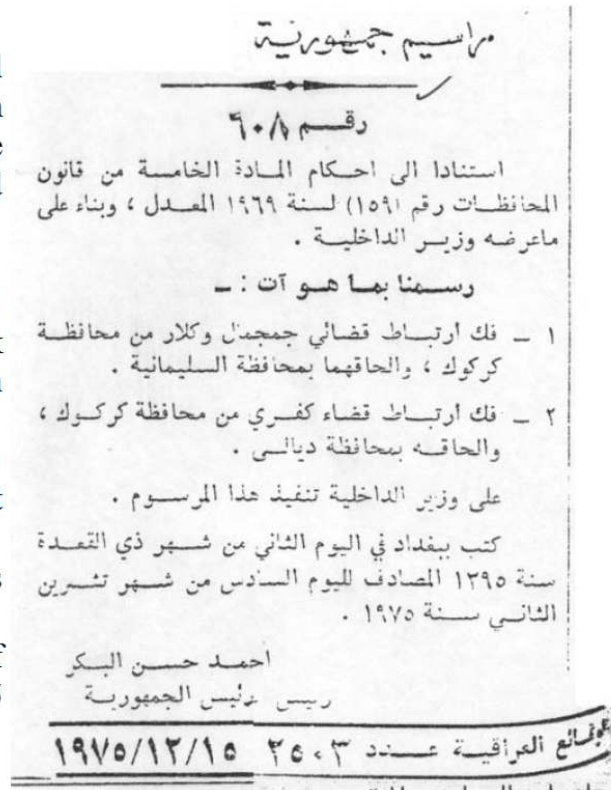 مراسيم جمهورية
رقم ٦٠٨
استنادا الى احكام المادة الخامسة من قانون
المحافظات رقم (١٥٩) لسنة ١٩٦٩ المعدل ، وبناء على
ماعرضه وزير الداخلية .
رسمنا بما هو آت : ــ
١ ــ فك ارتباط قضائي جمجمال وكلار من محافظة
كركوك ، والحاقهما بمحافظة السليمانية .
٢ ــ فك ارتباط قضاء كفري من محافظة كركوك ،
والحاقه بمحافظة ديالى .
على وزير الداخلية تنفيذ هذا المرسوم .
كتب ببغداد في اليوم الثاني من شهر ذي القعدة
سنة ١٣٩٥ المصادف لليوم السادس من شهر تشرين
الثاني سنة ١٩٧٥ .
احمد حسن البكر
رئيس الجمهورية
العراقية عدد ٢٥٠٣ ١٩٧٥/١٢/١٥